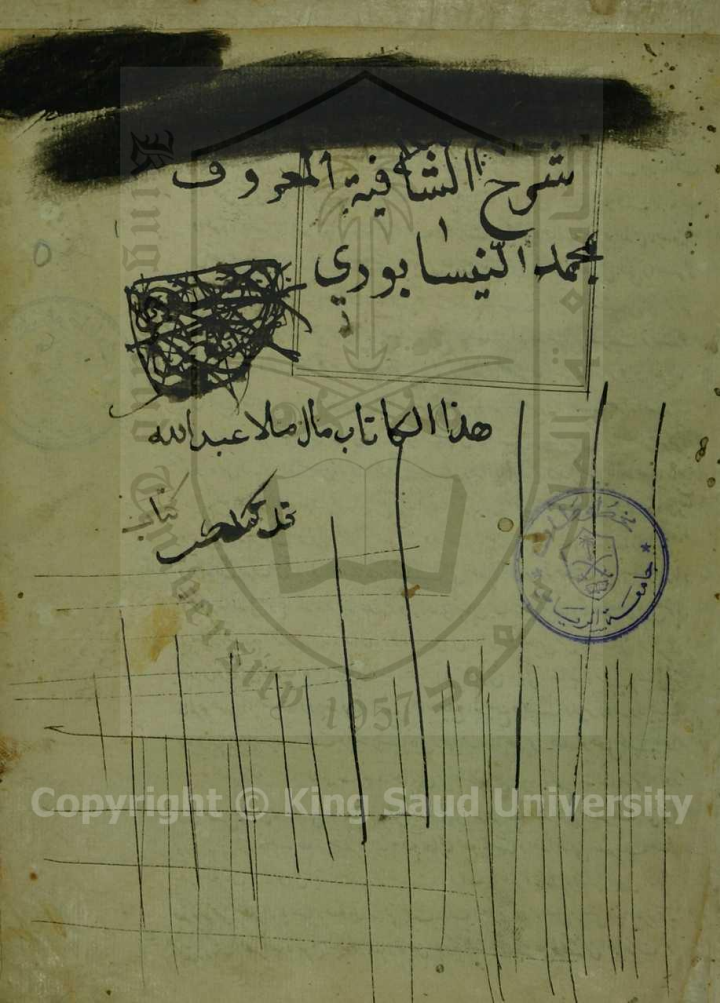 شرح الشافية المعروف
محمد النيسابوري
هذا الكاتاب مال ملا عبدالله
قد
جامعة الرياض
King Saud University
1957
Copyright © King Saud University